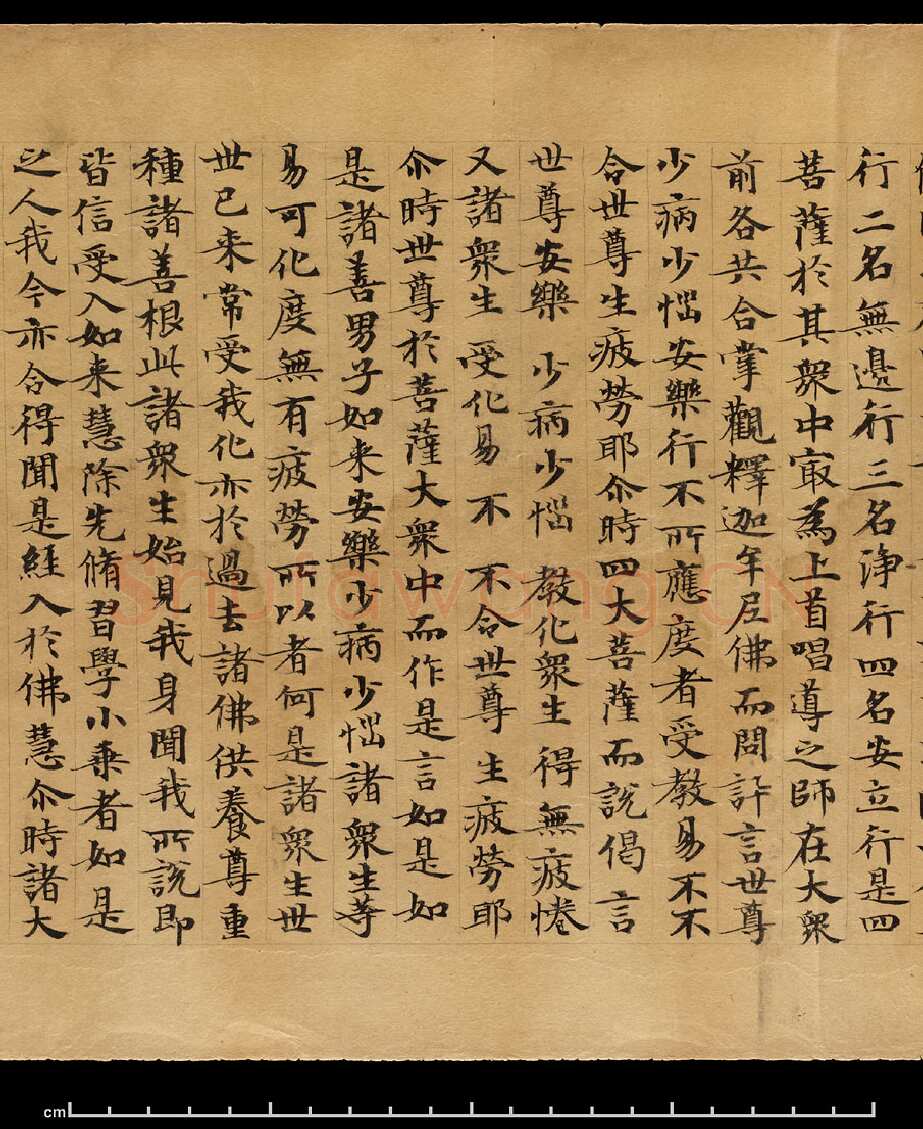 行二名無邊行三名淨行四名安立行是四
菩薩於其衆中㝡為上首唱導之師在大衆
前各共合掌觀釋迦牟尼佛而問訊言世尊
少病少惱安樂行不所應度者受教易不不
令世尊生疲勞耶尒時四大菩薩而說偈言
世尊安樂 少病少惱 教化衆生 得無疲惓
又諸衆生 受化易不 不令世尊 生疲勞耶
尒時世尊於菩薩大衆中而作是言如是如
是諸善男子如来安樂少病少惱諸衆生等
易可化度無有疲勞所以者何是諸衆生世
世已来常受我化亦於過去諸佛供養尊重
種諸善根此諸衆生始見我身聞我所說即
皆信受入如来慧除先脩習學小乗者如是
之人我今亦令得聞是經入於佛慧尒時諸大
Shufawang.CN
cm